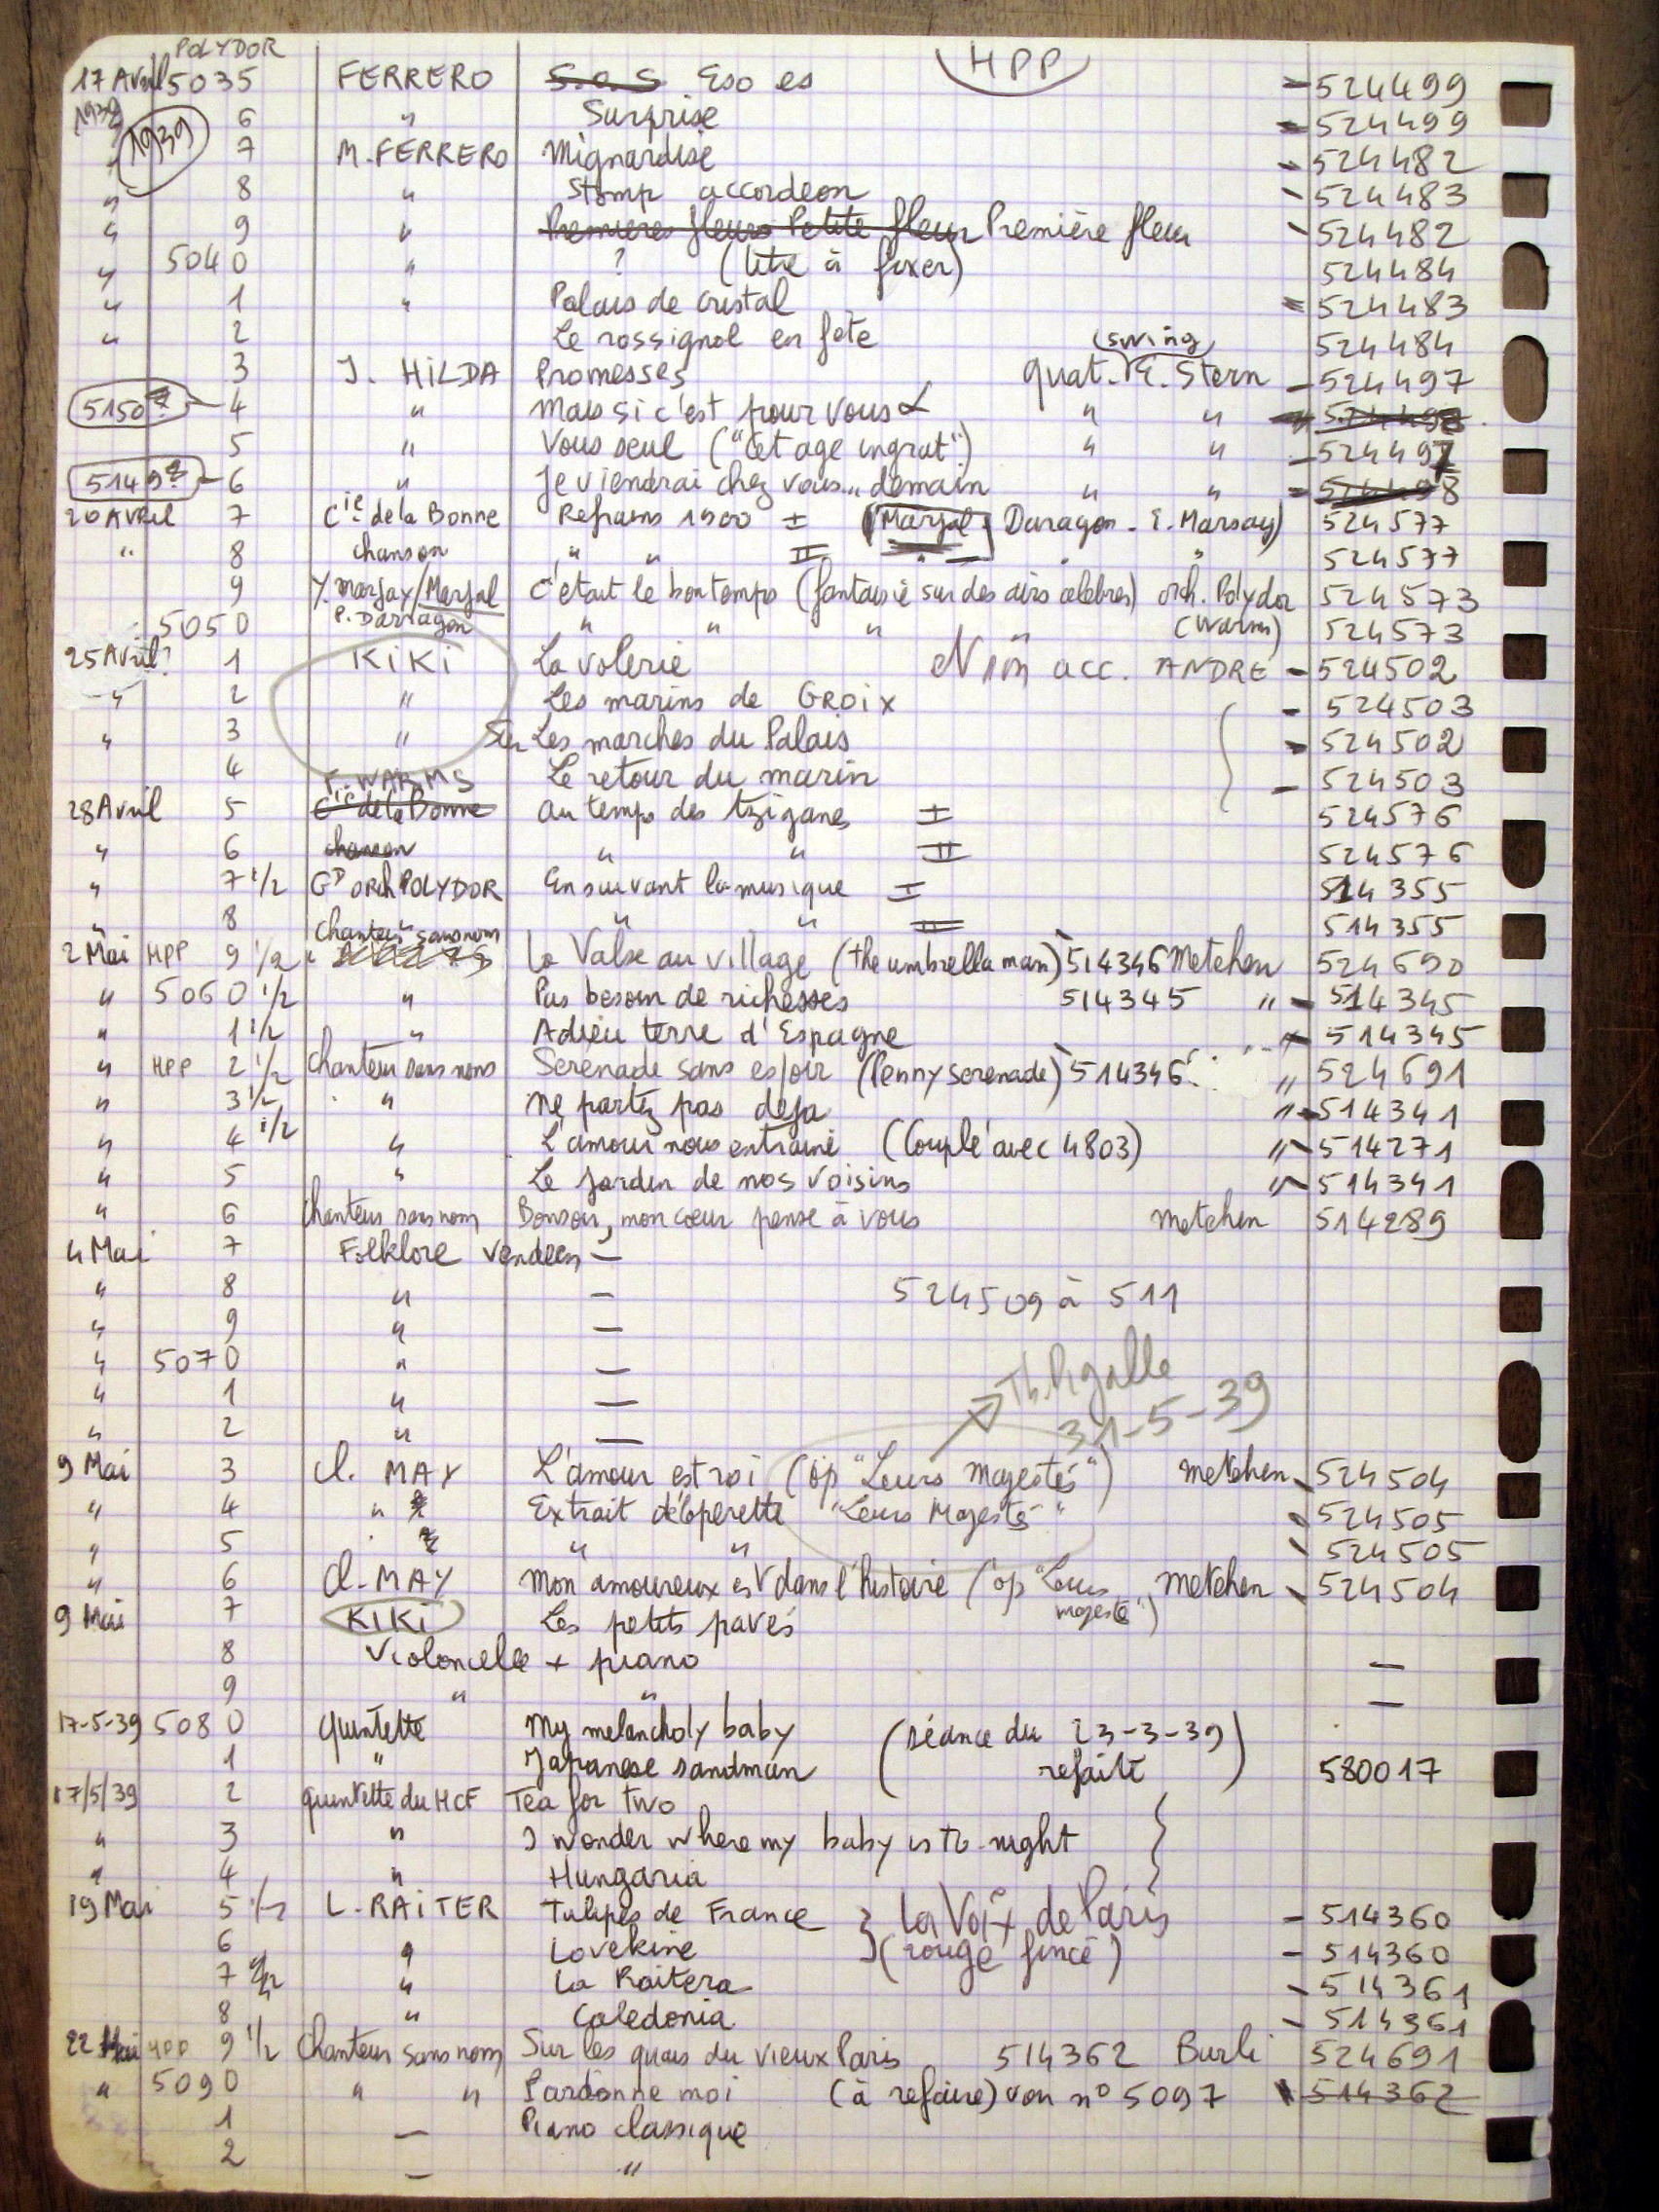 POLYDOR HPP
17 Avril 5035 FERRERO S.O.S Eso es - 524499
1939 6 " Surprise - 524499
1939 7 M. FERRERO Mignardise - 524482
" 8 " Stomp accordeon - 524483
" 9 " Premieres fleurs Petite fleur Première fleur - 524482
" 5040 " ? (titre à fixer) 524484
" 1 " Palais de cristal = 524483
" 2 Le rossignol en fete 524484
(swing)
3 J. HILDA Promesses Quat. E. Stern - 524497
5150 4 " Mais si c'est pour vous " "
5 " Vous seul ("Cet age ingrat") " " - 524497
5149 6 " Je viendrai chez vous... demain " " -
20 Avril 7 Cie de la Bonne Refrains 1900 I (Marjal Daragon - Y. Marsay) 524577
" 8 chanson " " II " " 524577
9 Y. Marsay/Marjal C'etait le bon temps (fantaisie sur des airs celebres) orch. Polydor 524573
5050 P. Darragon " " " (Warms) 524573
25 Avril? 1 KIKI La volerie Non acc. ANDRE - 524502
" 2 " Les marins de GROIX - 524503
" 3 " Sur Les marches du Palais - 524502
4 Le retour du marin - 524503
F. WARMS
28 Avril 5 Cie de la Bonne Au temps des tziganes I 524576
" 6 chanson " " II 524576
" 7 1/2 GD ORCH POLYDOR En suivant la musique I 514355
" 8 " " " II 514355
Chanteur sans nom
2 Mai HPP 9 1/2 " La Valse au village (the umbrella man) 514346 Metehen 524690
" 5060 1/2 " Pas besoin de richesses 514345 " - 514345
" 1 1/2 " Adieu terre d'Espagne " 514345
" HPP 2 1/2 Chanteur sans nom Serenade sans espoir (Penny serenade) 514346 " 524691
" 3 1/2 " Ne partez pas deja " - 514341
" 4 1/2 " L'amour nous entraine (Couplé avec 4803) " - 514271
" 5 " Le jardin de nos voisins " - 514341
" 6 Chanteur sans nom Bonsoir, mon coeur pense à vous Metehen 514289
4 Mai 7 Folklore vendeen —
" 8 " — 524509 à 511
" 9 " —
" 5070 " —
" 1 " — Th. Pigalle
" 2 " — 31-5-39
9 Mai 3 Cl. MAY L'amour est roi (op "Leurs Majestés") Metehen - 524504
" 4 " Extrait de l'operette "Leurs Majestés" 524505
" 5 " " " - 524505
" 6 Cl. MAY Mon amoureux est dans l'histoire (op "Leurs Metehen - 524504
majestés")
9 Mai 7 KIKI Les petits pavés
8 Violoncelle + piano —
9 " " —
17-5-39 5080 Quintette My melancholy baby (séance du 23-3-39)
1 " Japanese sandman refaite 580017
17/5/39 2 quintette du HCF Tea for two
" 3 " I wonder where my baby is to-night
" 4 " Hungaria
19 Mai 5 1/2 L. RAITER Tulipes de France La Voix de Paris - 514360
6 " Lovekine (rouge foncé) - 514360
7 1/2 " La Raitera - 514361
8 " Caledonia - 514361
22 Mai HPP 9 1/2 Chanteur sans nom Sur les quais du vieux Paris 514362 Burli 524691
" 5090 " " Pardonne moi (à refaire) voir n° 5097 514362
1 — Piano classique
2 — "